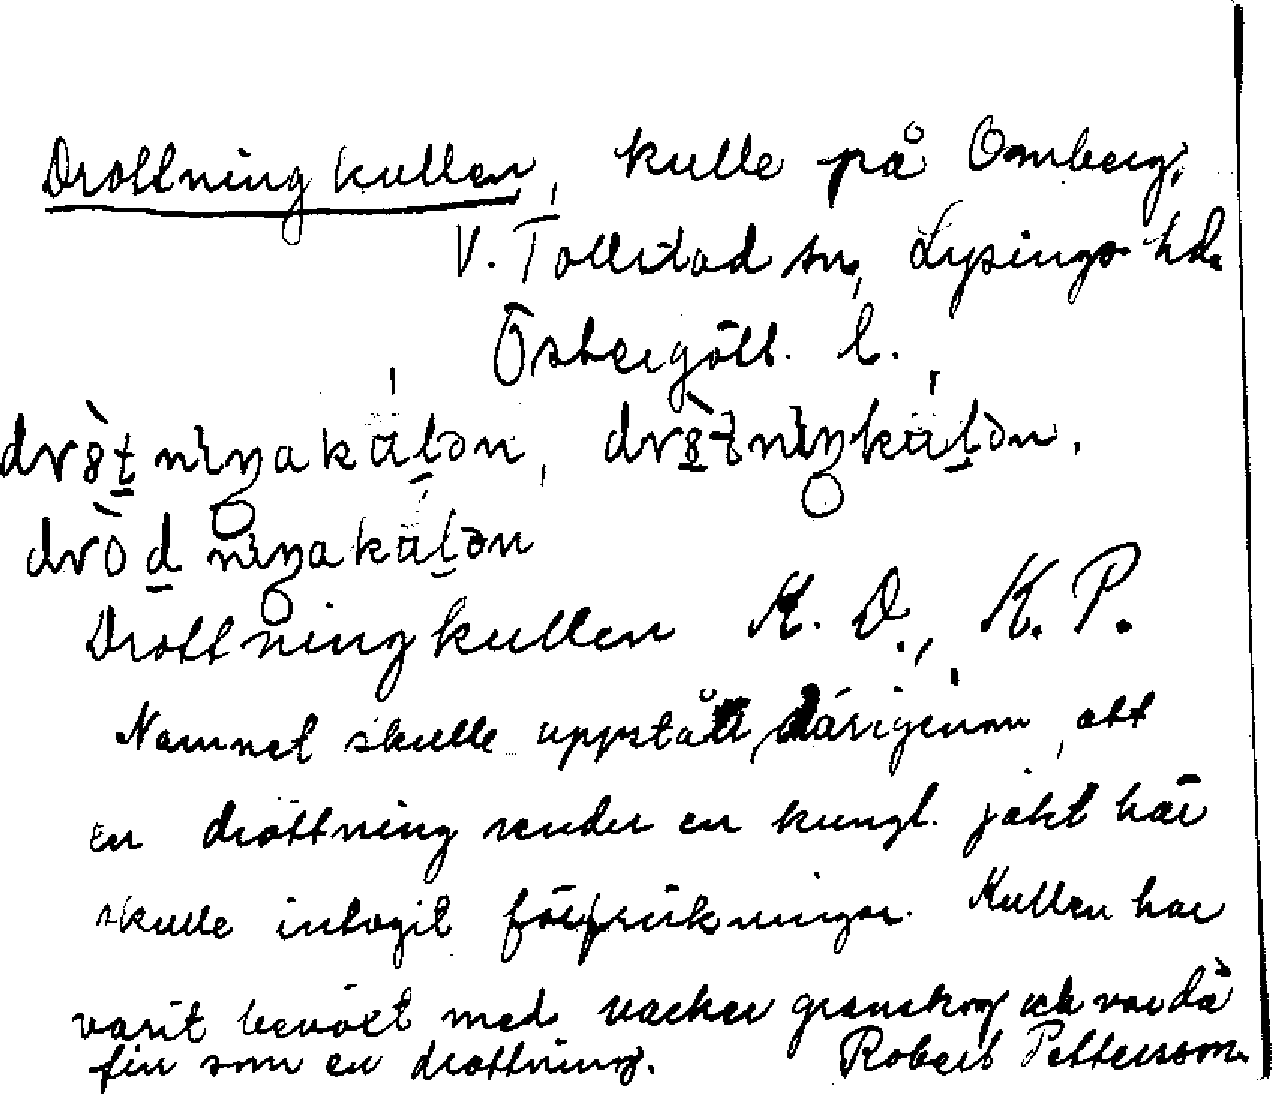 Drottningkullen, kulle på Omberg,
V. Tollstad sn, Lysings hd.
Östergötl. l.
dròtningakúllen, dròtningkúllen,
dròdningakúllen
Drottningkullen K. D., K. P.
Namnet skulle uppstått därigenom, att
en drottning under en kungl. jakt här
skulle intagit förfriskningar. Kullen har
varit bevuxt med vacker granskog och var då
fin som en drottning. Robert Pettersson.